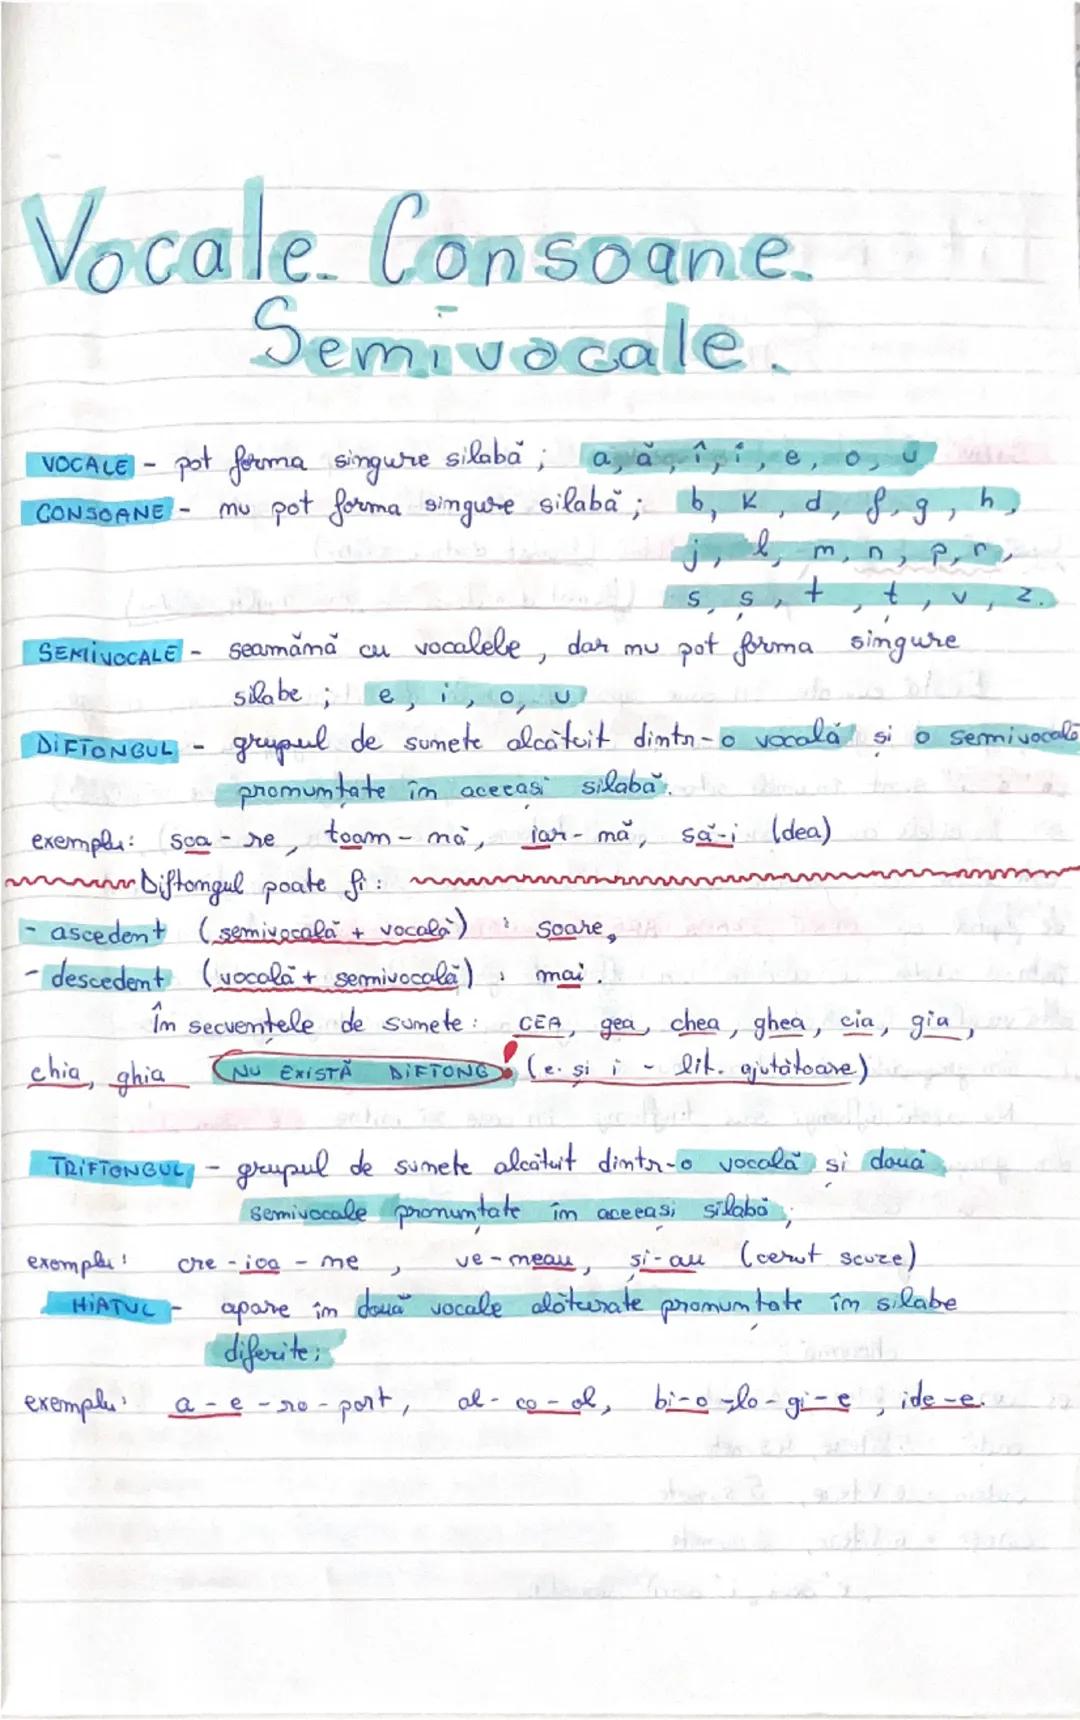 Vocale. Consoane.
Semivocale.
VOCALE - pot forma singure silabă; a, ă, î, i, e, o, u
CONSOANE - nu pot forma singure silabă; b, k, d, f, g, h,
j, l, m, n, p, r,
s, ș, t, ț, v, z.
SEMIVOCALE - seamănă cu vocalele, dar nu pot forma singure
silabe; e, i, o, u
DIFTONGUL - grupul de sunete alcătuit dintr-o vocală și o semivocală
pronunțate în aceeași silabă.
exemplu: soa-re, toam-nă, iar-nă, să-i (dea)
Diftongul poate fi:
- ascedent (semivocală + vocală): soare,
- descedent (vocală + semivocală): mai.
În secvențele de sunete: CEA, gea, chea, ghea, cia, gia,
chia, ghia NU EXISTĂ DIFTONG! (e. și i - lit. ajutătoare)
TRIFTONGUL - grupul de sunete alcătuit dintr-o vocală și două
semivocale pronunțate în aceeași silabă;
exemplu: cre-ioa-ne, ve-neau, și-au (cerut scuze)
HIATUL - apare în două vocale alăturate pronunțate în silabe
diferite;
exemplu: a-e-ro-port, al-co-ol, bi-o-lo-gi-e, ide-e.